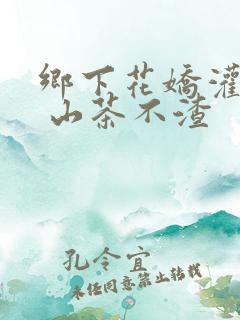 鄉下花嬌灌
山茶不渣
孔令宜
未经同意禁止转载